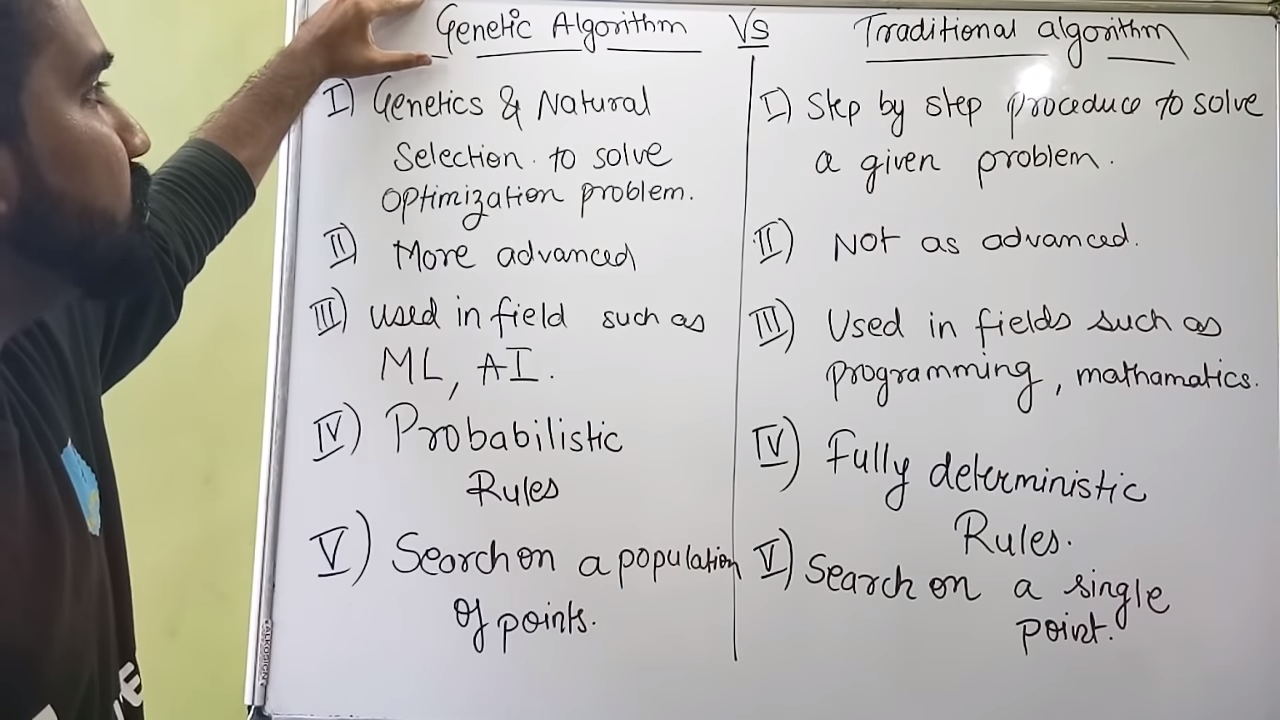 Genetic Algorithm Vs Traditional algorithm
I) Genetics & Natural
Selection. to solve
optimization problem.
II) More advanced
III) used in field such as
ML, AI.
IV) Probabilistic
Rules
V) Search on a population
of points.
I) Step by step proceduce to solve
a given problem.
II) Not as advanced.
III) Used in fields such as
programming, mathamatics.
IV) Fully deterministic
Rules.
V) Search on a single
point.
ALKOSIGN